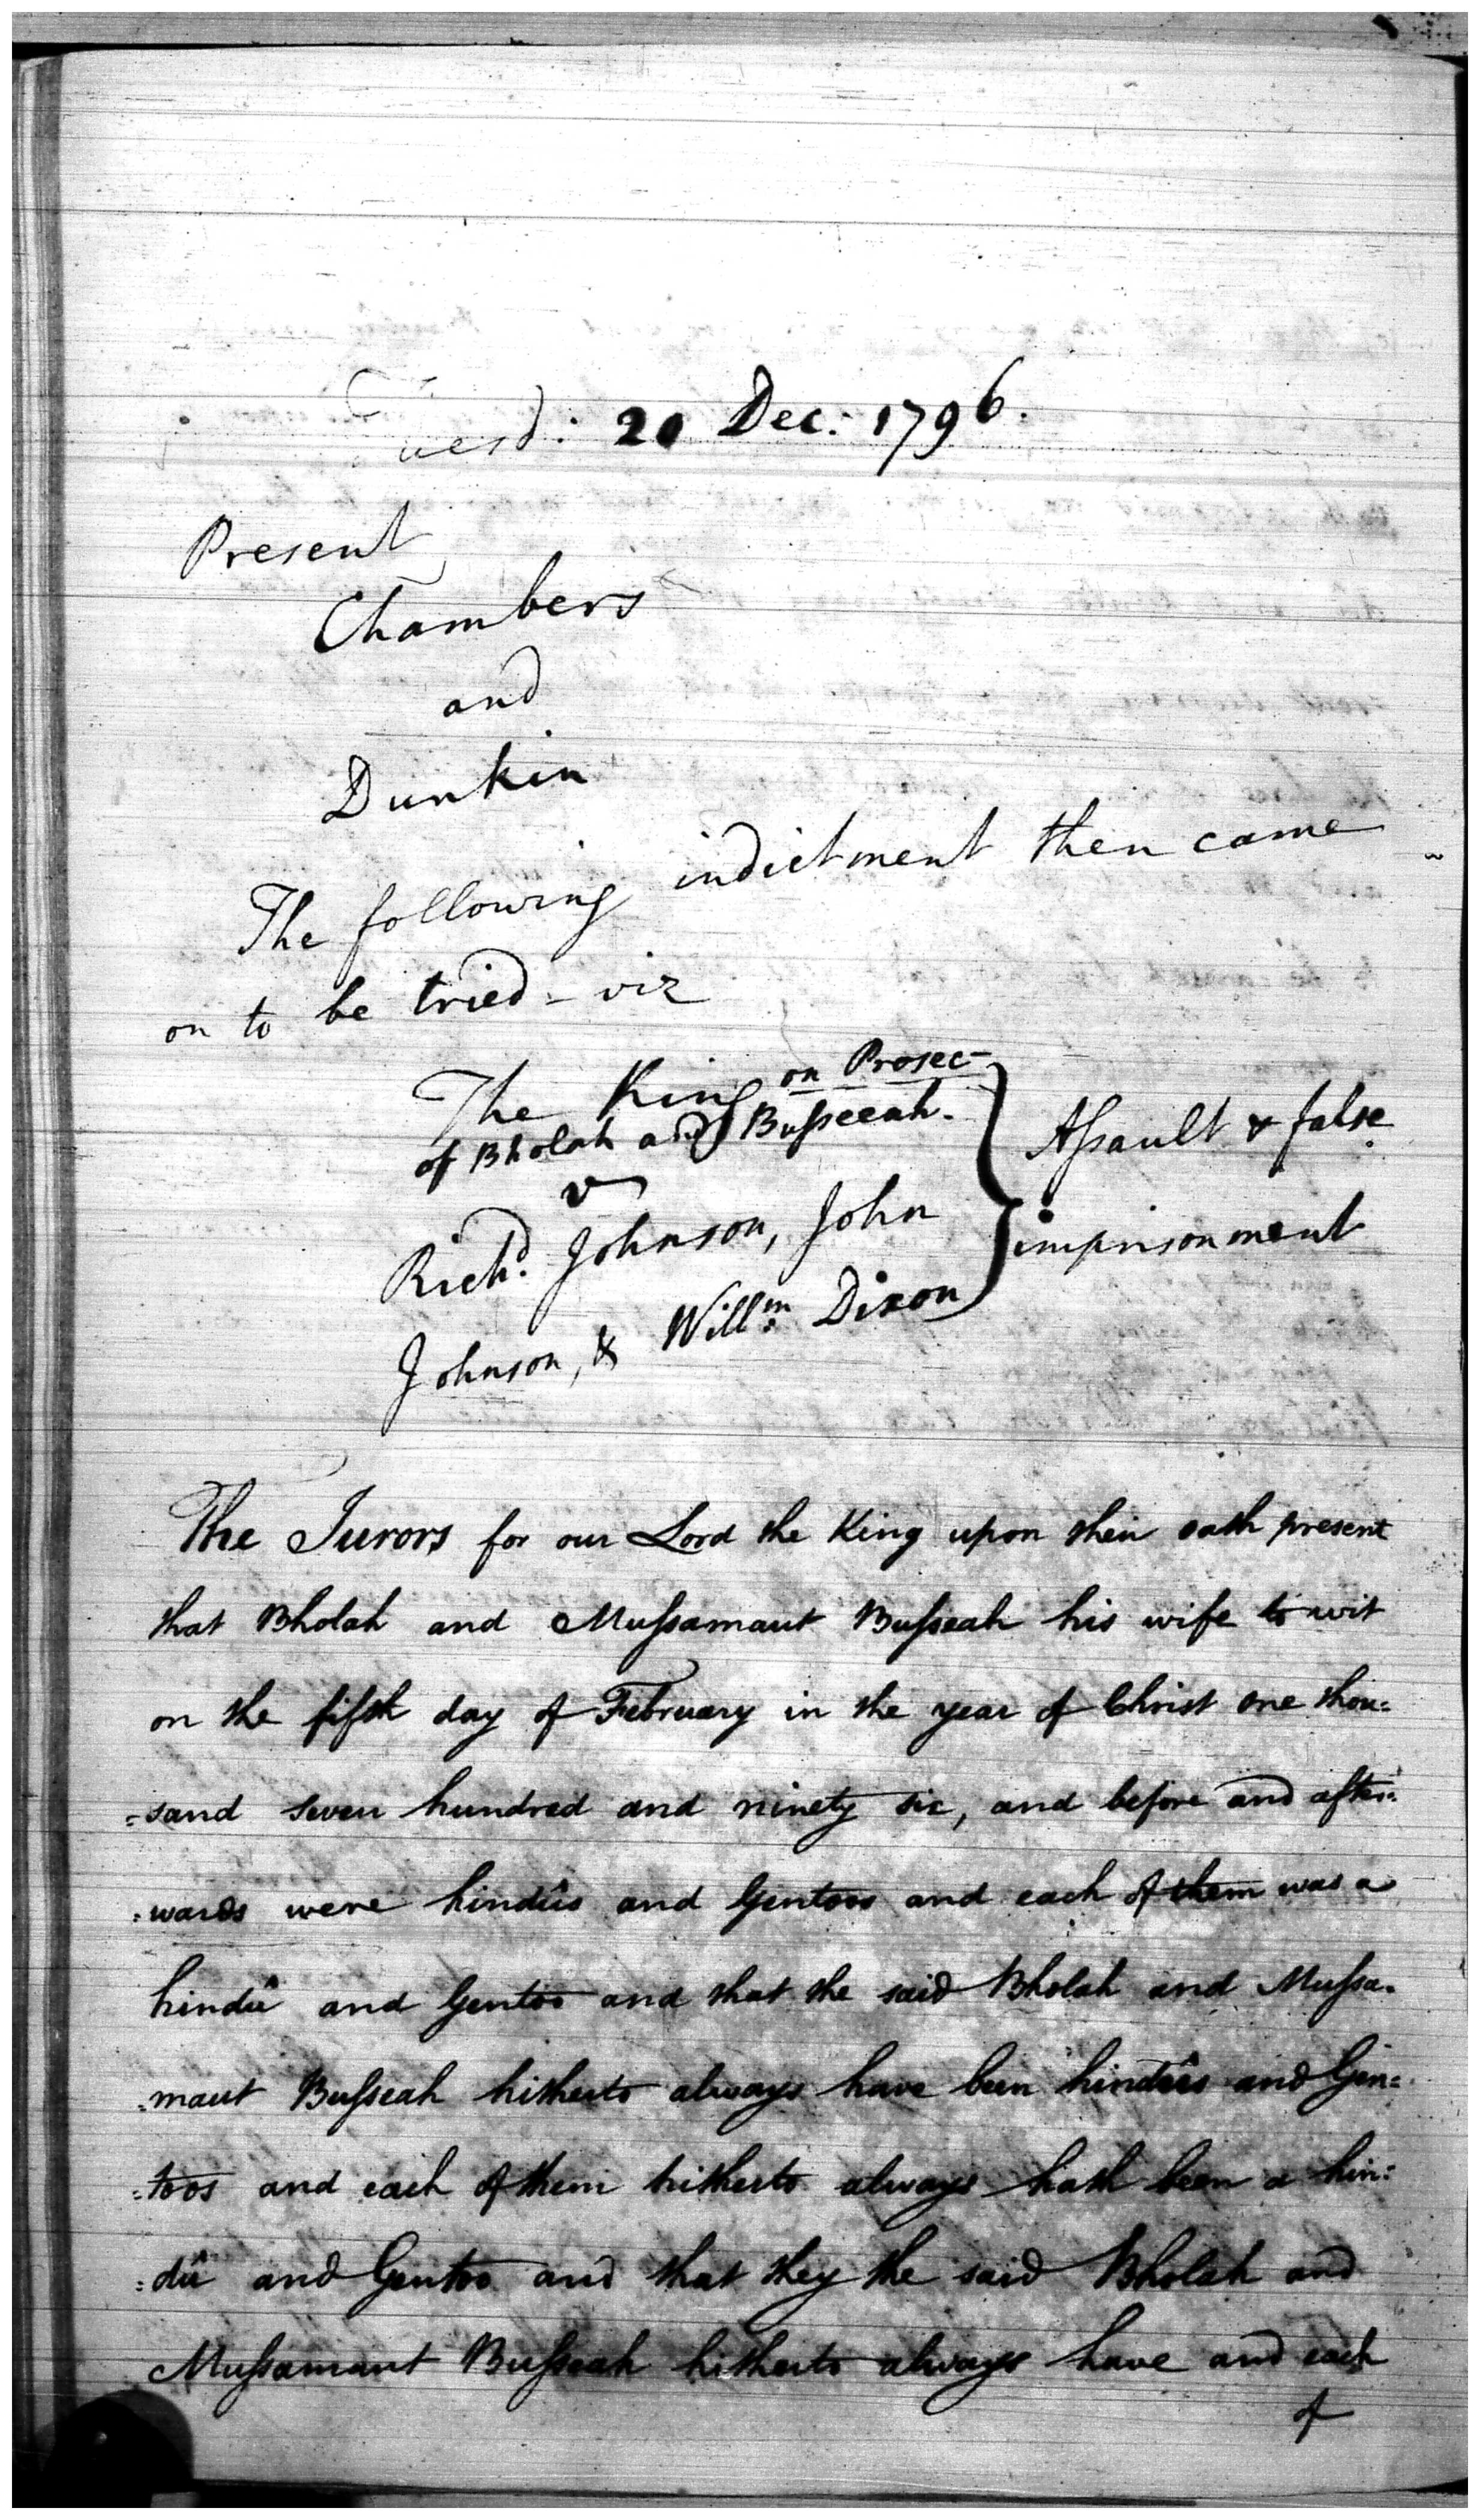 Tuesd: 20 Dec: 1796.
Present
Chambers
and
Dunkin
The following indictment then came
on to be tried - viz
The King on Prosec-
of Bholah and Busseeah.
v
Richd. Johnson, John
Johnson, & Willm. Dixon
Assault & false
imprisonment
The Jurors for our Lord the King upon their oath present
that Bholah and Mussamaut Busseah his wife to wit
on the fifth day of February in the year of Christ one thou=
=sand seven hundred and ninety six, and before and after=
=wards were hindûs and Gentoos and each of them was a
hindû and Gentoo and that the said Bholah and Mussa=
=maut Busseah hitherto always have been hindûs and Gen=
=toos and each of them hitherto always hath been a hin=
=dû and Gentoo and that they the said Bholah and
Mussamaut Busseah hitherto always have and each
of